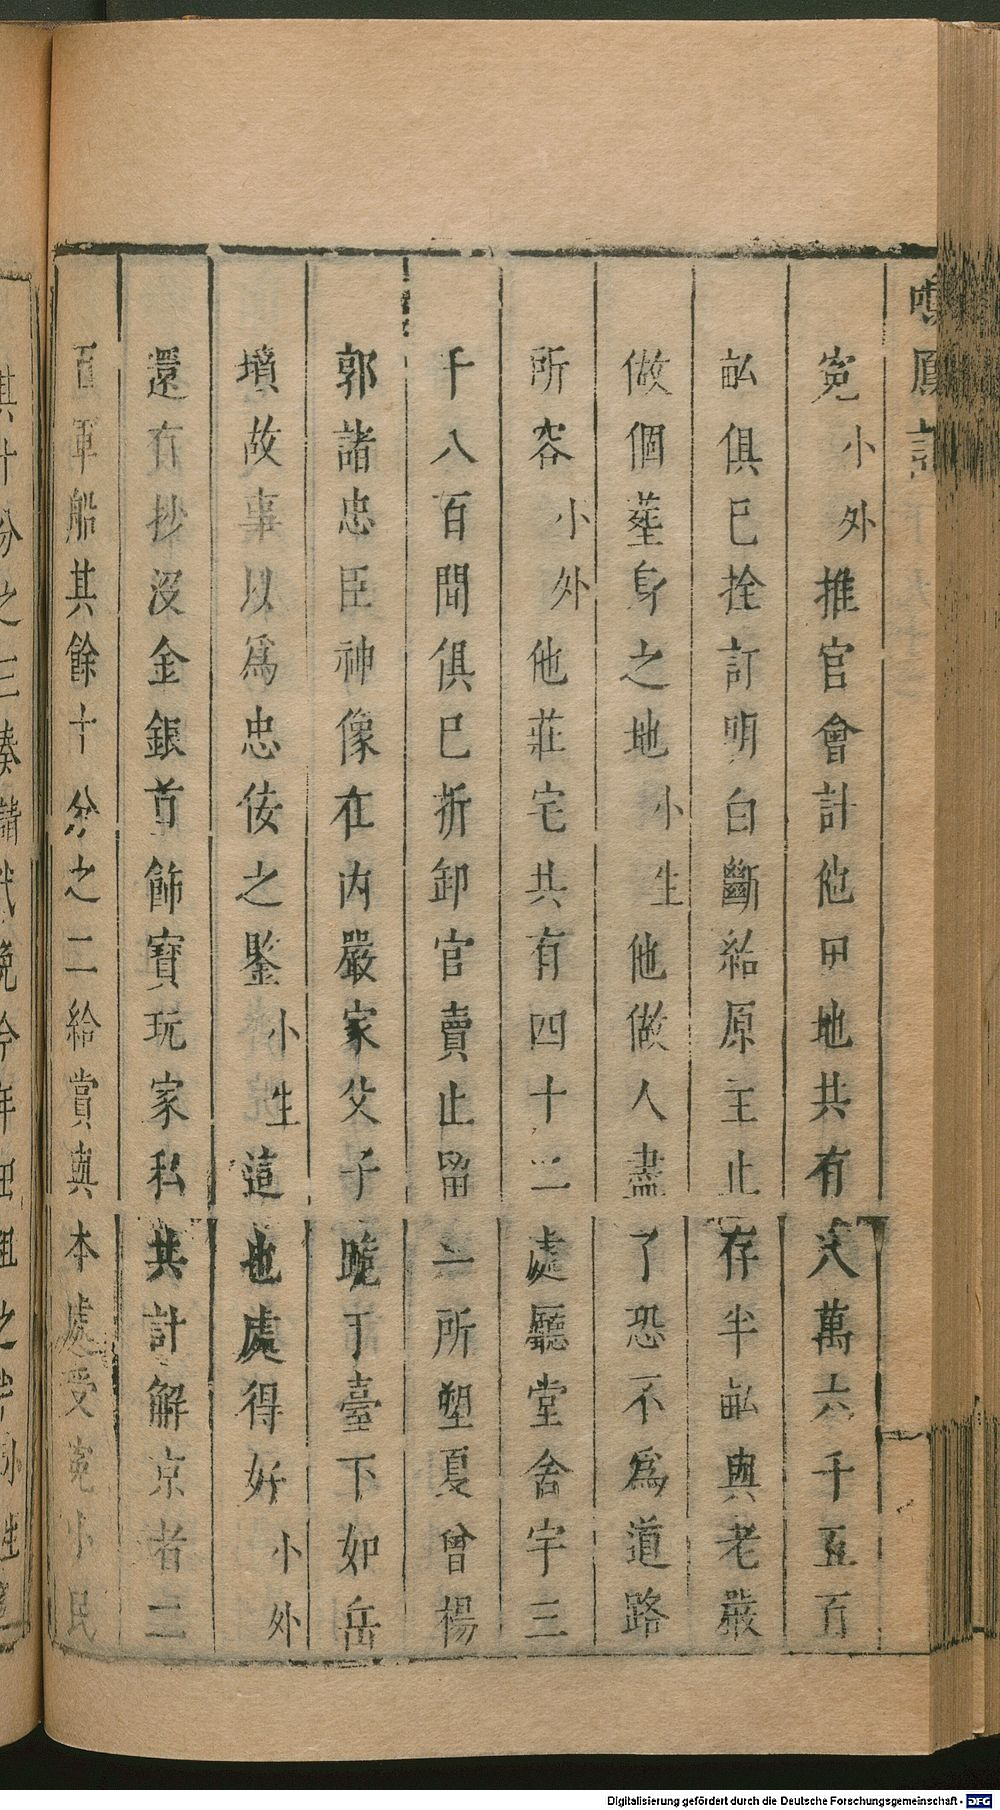 鳳
寃小外推官會計他田地共有八萬六千五百
畆俱已拴訂明白斷給原主止存半畆與老嚴
做個塟身之地小生他做人盡了恐不爲道路
所容小外他莊宅共有四十二處廳堂舍宇三
千八百間俱已折卸官賣止留一所塑夏曾楊
郭諸忠臣神像在内嚴家父子跪丁臺下如岳
墳故事以爲忠佞之鑒小生這也處得好小外
還有抄沒金銀首飾寳玩家私共計解京者二
百軍船其餘十分之二給賞與本處受寃小民
其十分之三湊
Digitalisierung gefördert durch die Deutsche Forschungsgemeinschaft - DFG